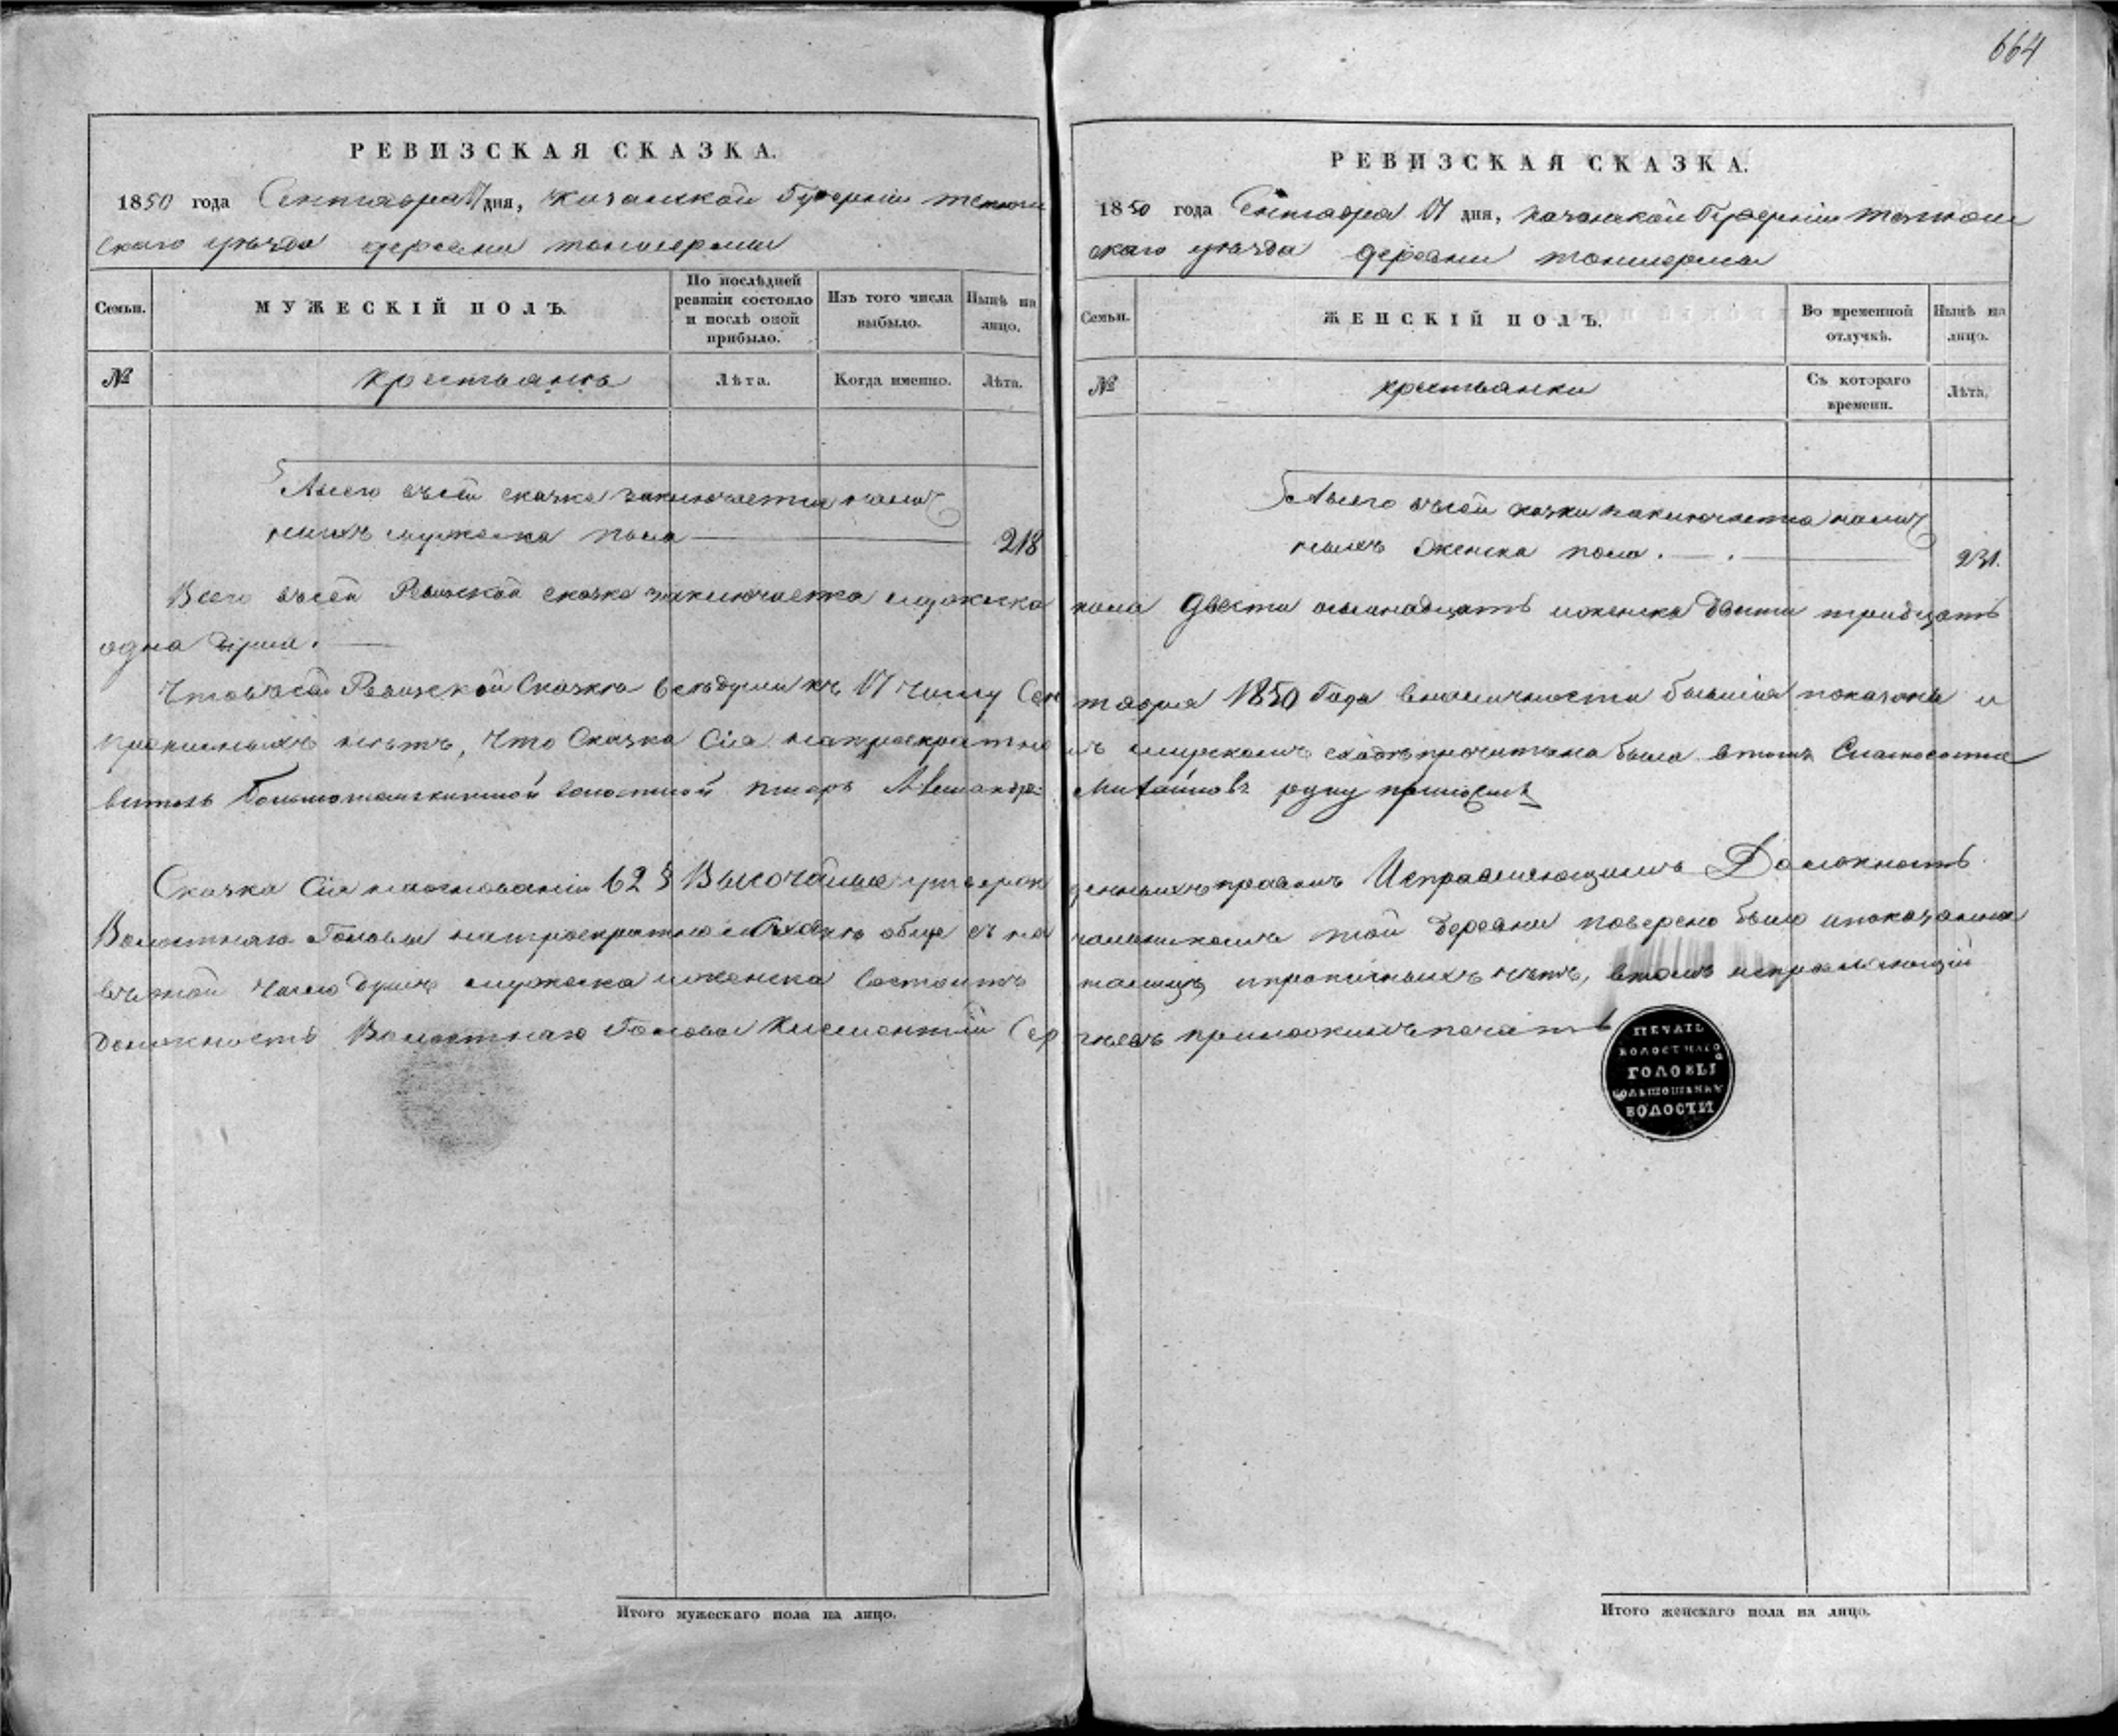 664
РЕВИЗСКАЯ СКАЗКА.
1850 года Сентября 17 дня, Казанской Губерніи тетюш
скаго уѣзда деревни
Семьи.
МУЖЕСКІЙ ПОЛЪ.
По послѣдней ревизіи состояло и послѣ оной прибыло.
Изъ того числа выбыло.
Нынѣ на лицо.
№
крестьянъ
Лѣта.
Когда именно.
Лѣта.
Авсего въсей сказке заключается налич
ныхъ мужеска пола 218
РЕВИЗСКАЯ СКАЗКА.
1850 года Сентября 17 дня, казанской Губерніи тетюш
скаго уѣзда деревни
Семьи.
ЖЕНСКІЙ ПОЛЪ.
Во временной отлучкѣ.
Нынѣ на лицо.
№
крестьянки
Съ котораго времени.
Лѣта.
Авсего въсей заключается налич
ныхъ женска пола. 231.
Всего въсей Ревизской сказке заключается мужеска пола Двести осьмнадцать иженска двести тридцать
одна душа.
Чтовъсей Ревизской Сказке кѣ 17 числу Сентября 1850 Года вналичности показаны и
прописныхъ нѣтъ, что Сказка Сія натроекратномъ мирскомъ сходѣ прочитана была втомъ
волостной писарь руку приложилъ
Сказка Сія наоснованіи 62 § Высочайше утвержденныхъ правилъ Исправляющимъ Должность
Волостнаго Головы натроекратном сходѣ обще съ начальникомъ той деревни поверено было ипоказанное
въоной число душъ мужеска иженска Состоитъ ипрописныхъ нѣтъ, втомъ исправляющій
Должность Волостнаго Головы Клементій Сергѣевъ приложилъ печать
ПЕЧАТЬ
ВОЛОСТНАГО
ГОЛОВЫ
ВОЛОСТИ
Итого мужескаго пола на лицо.
Итого женскаго пола на лицо.